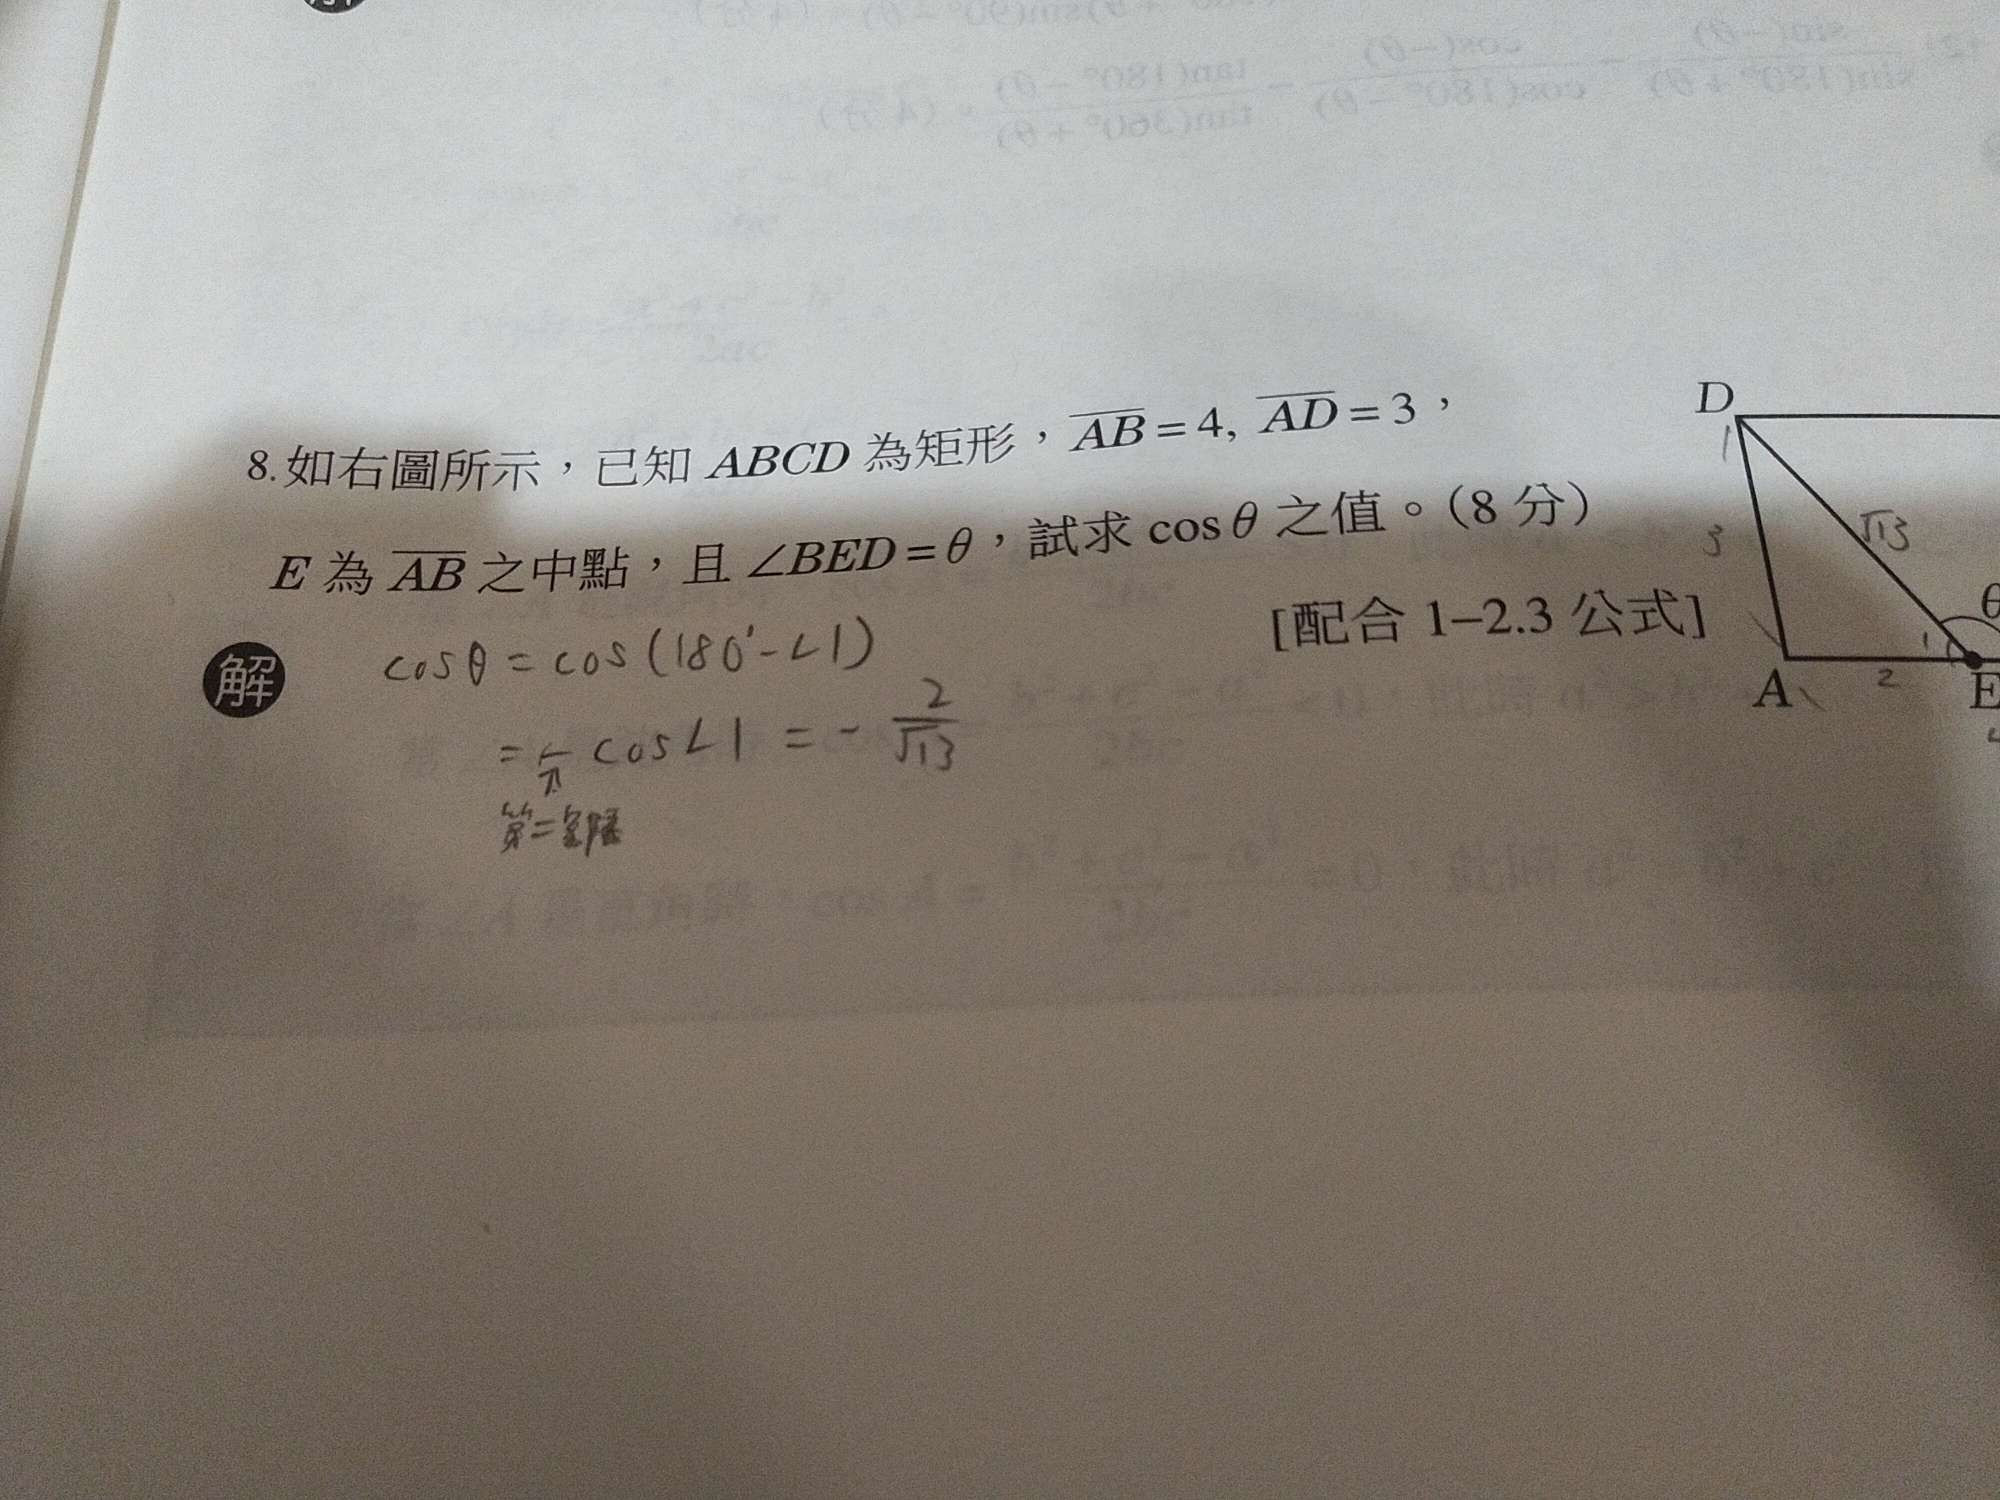 8.如右圖所示，已知 ABCD 為矩形，AB = 4, AD = 3，
E 為 AB 之中點，且 ∠BED = θ，試求 cos θ 之值。(8 分)
[配合 1–2.3 公式]
解
cosθ = cos(180° - ∠1)
= - cos∠1 = - 2/√13
第二象限
D
1
3
√13
θ
1
A
2
E